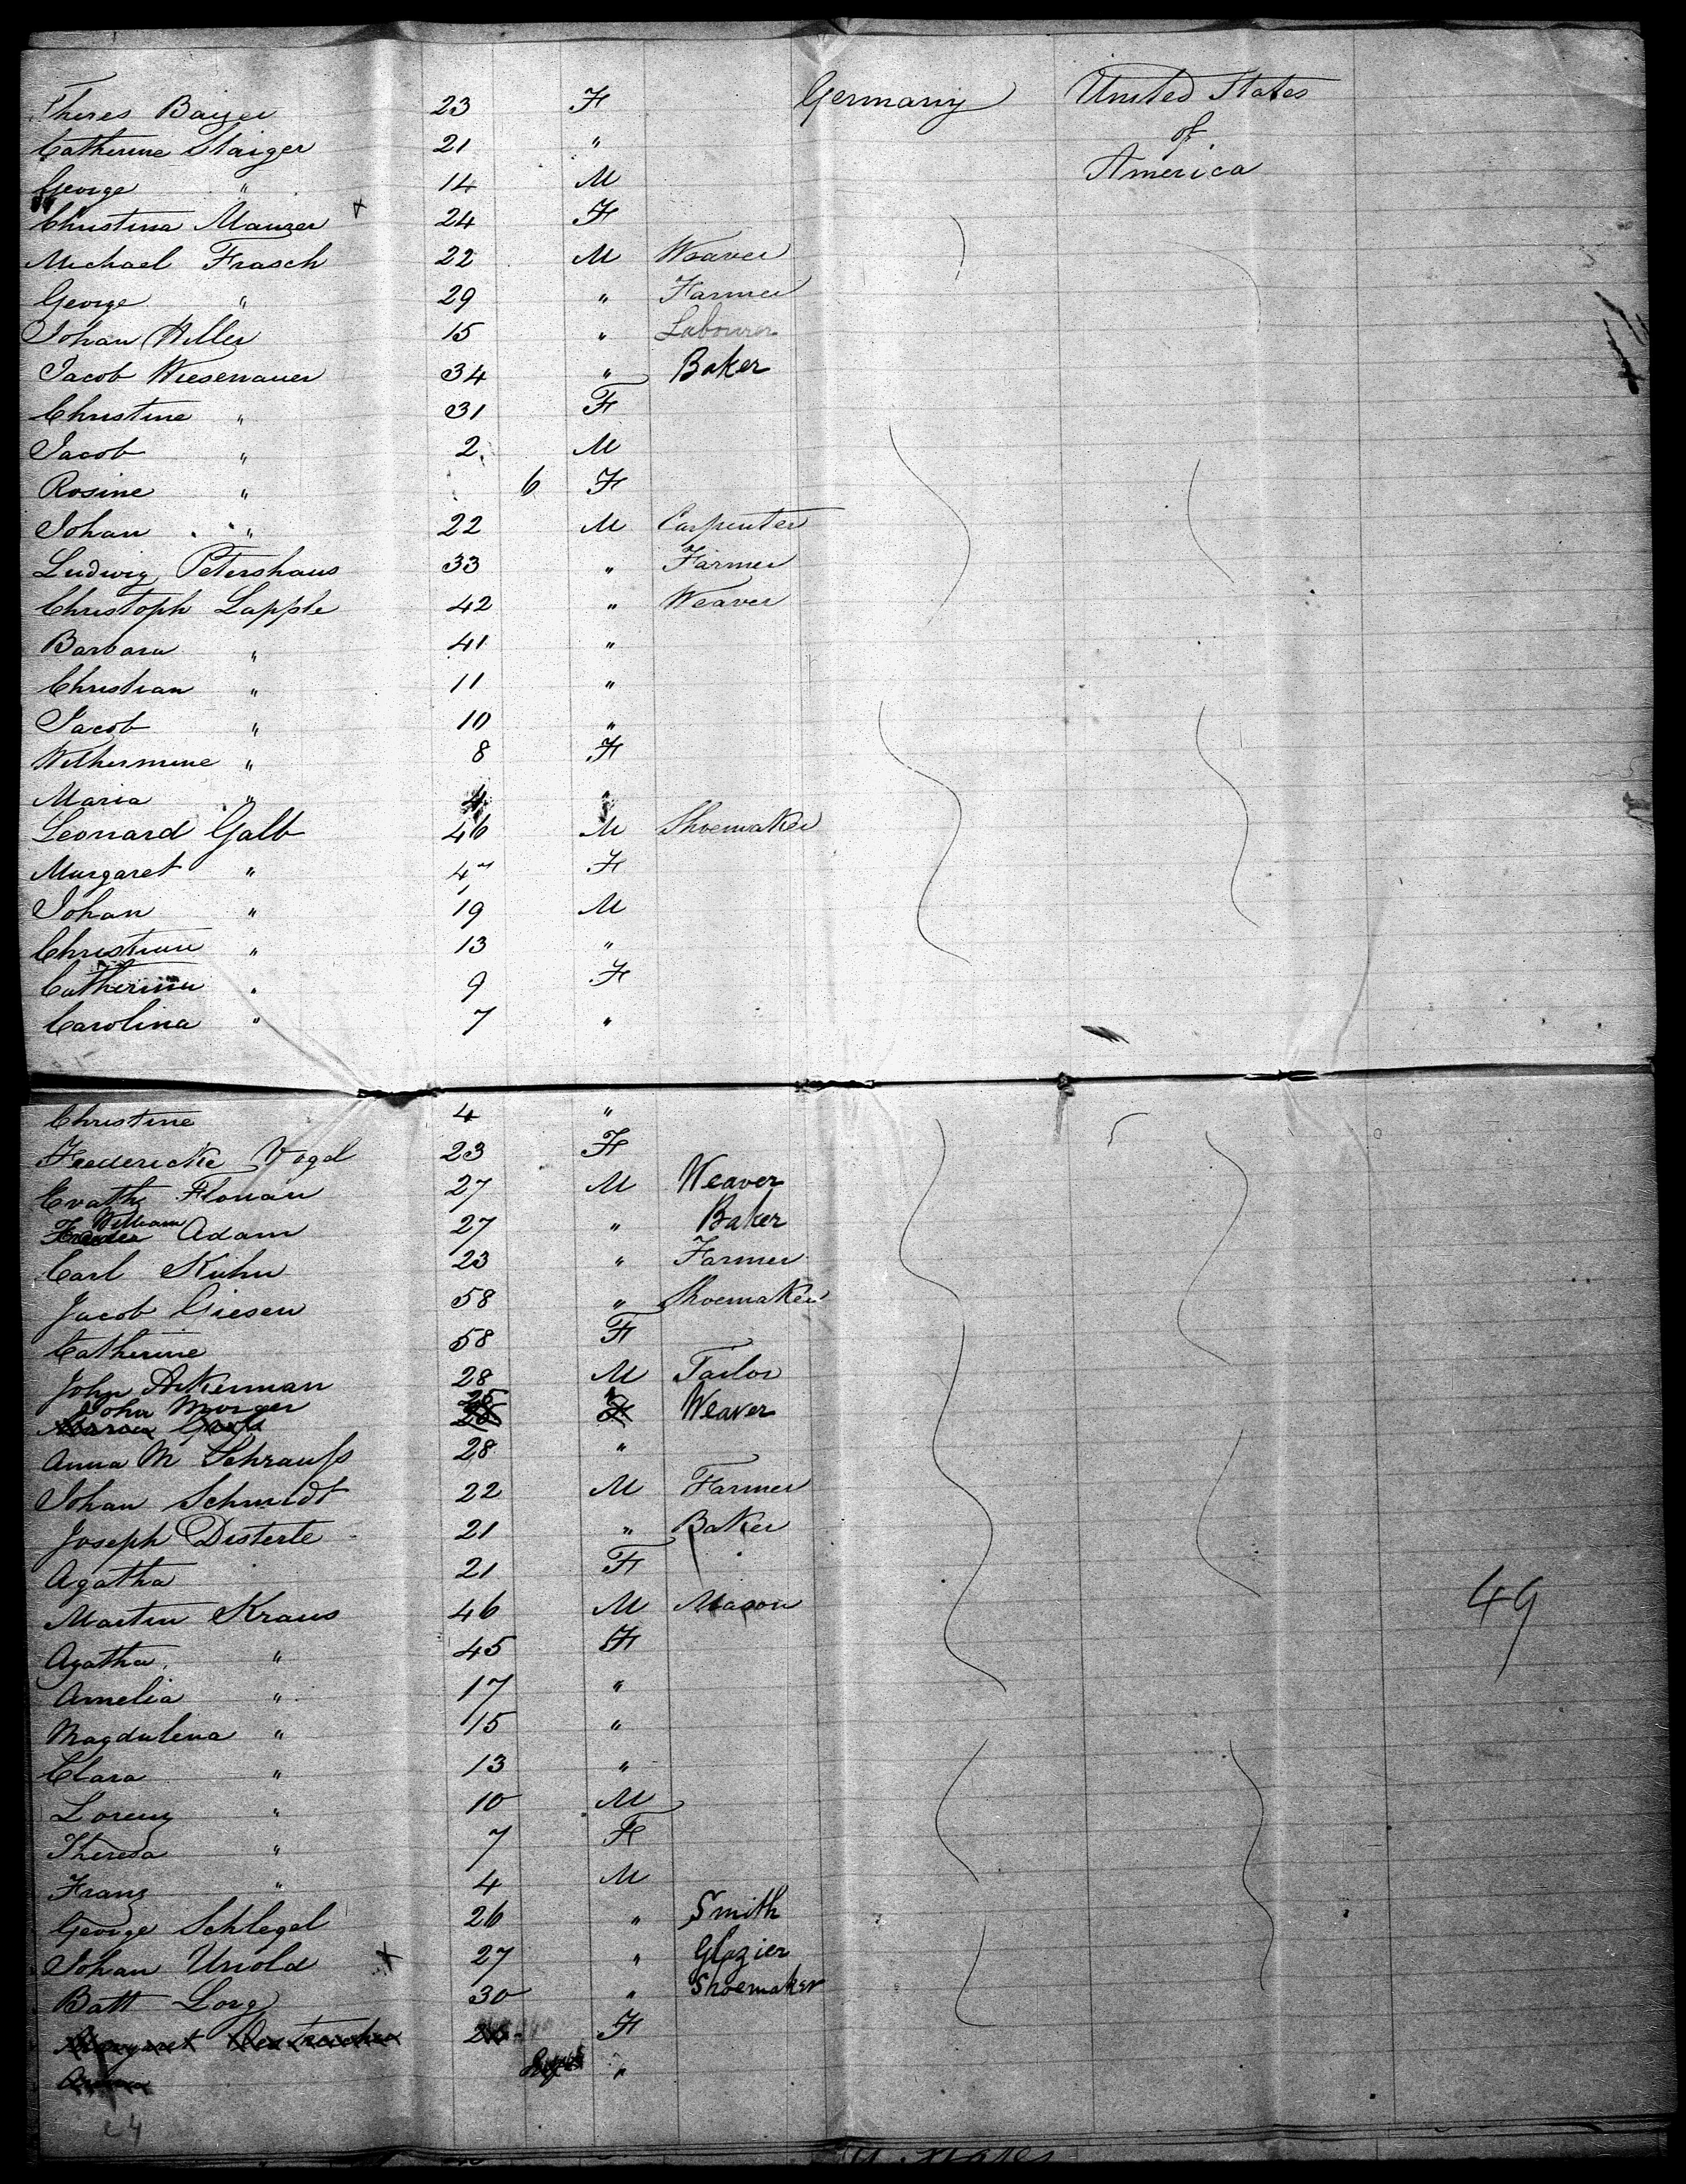 Theres Bayer 23 F Germany United States
Catherine Staiger 21 " of
George " 14 M America
Christina Mauzer x 24 F
Michael Frasch 22 M Weaver
George " 29 " Farmer
Johan Hiller 15 " Labourer
Jacob Wiesenauer 34 " Baker
Christine " 31 F
Jacob " 2 M
Rosine " 6 F
Johan " 22 M Carpenter
Ludwig Petershaus 33 " Farmer
Christoph Lapple 42 " Weaver
Barbara " 41 "
Christian " 11 "
Jacob " 10 "
Wilhermine " 8 F
Maria " 4 "
Leonard Galb 46 M Shoemaker
Margaret " 47 F
Johan " 19 M
Christian " 13 "
Catherina " 9 F
Carolina " 7 "
Christine 4 "
Fredericke Vogel 23 F
Evath Florian 27 M Weaver
William Adam 27 " Baker
Carl Kuhn 23 " Farmer
Jacob Giesen 58 " Shoemaker
Catherine 58 F
John Akerman 28 M Tailor
John Morger 25 Weaver
Anna M Schrauss 28 "
Johan Schmidt 22 M Farmer
Joseph Disterle 21 " Baker
Agatha 21 F
Martin Kraus 46 M Mason 49
Agatha " 45 F
Amelia " 17 "
Magdalena " 15 "
Clara " 13 "
Lorenz " 10 M
Theresa " 7 F
Franz " 4 M
George Schlegel 26 " Smith
Johan Unold x 27 " Glazier
Batt Lorg 30 " Shoemaker
Margaret 26 F
"